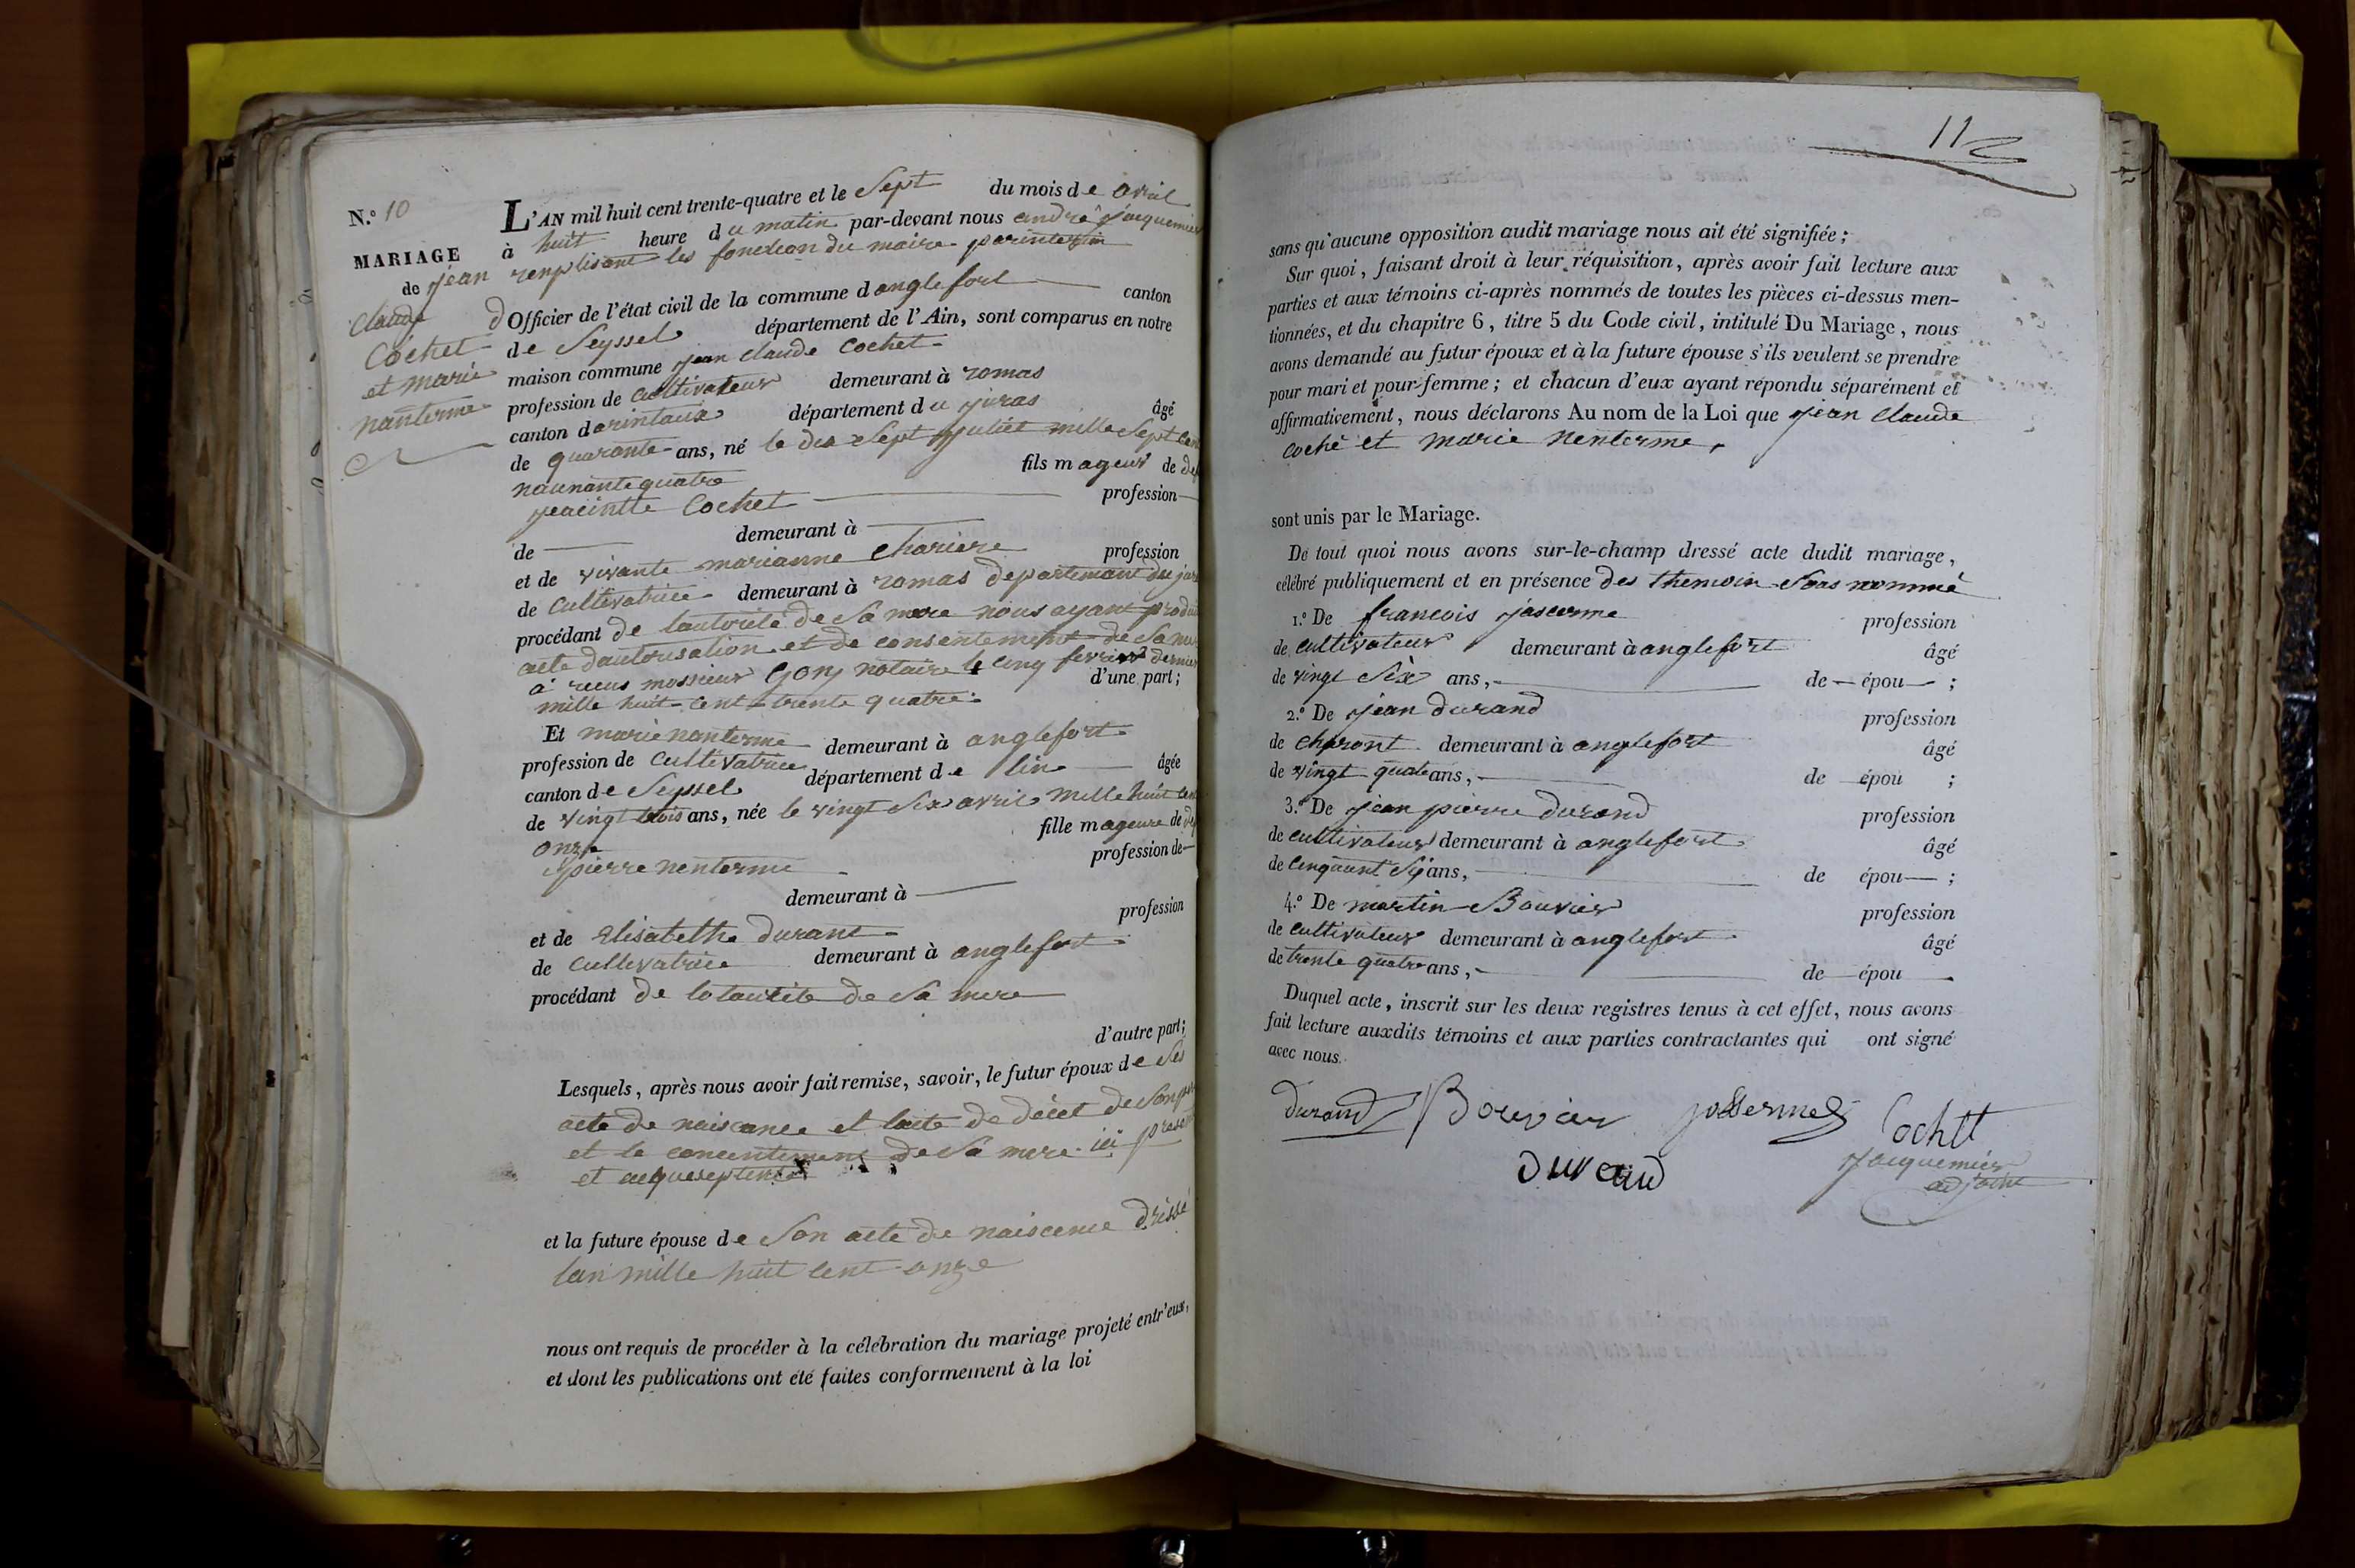 N.º 10
MARIAGE
de jean
claude
Cochet
et marie
nanterme
L'AN mil huit cent trente-quatre et le Sept du mois de avril
à huit heure du matin par-devant nous andré jacquemier
remplisant les fonction du maire parinterim
Officier de l'état civil de la commune d anglefort canton
de Seyssel département de l'Ain, sont comparus en notre
maison commune jean claude Cochet
profession de cultivateur demeurant à romas
canton darintaux département du juras âgé
de quarante ans, né le dix Sept juliet mille Sept Cent
naunante quatre fils mageur de
jeacintte Cochet profession
de demeurant à
et de vivante marianne Chariere profession
de Cultivatrice demeurant à romas departement du jura
procédant de lautorité de Sa mere nous ayant produit
acte dautorisation et de consentement de Sa mere
a recus monsieur Gony notaire le cinq fevrier dernier
mille huit cent trente quatre d'une part;
Et marie nanterme demeurant à anglefort
profession de Cultivatrice
canton de Seyssel département de lin âgée
de vingt trois ans, née le vingt Six avril Mille huit cent
onze fille mageure de
pierre nenterme profession de
demeurant à
et de Elisabethe Durant profession
de Cultivatrice demeurant à anglefort
procédant de de Sa mere
d'autre part;
Lesquels, après nous avoir fait remise, savoir, le futur époux de Ses
acte de naiscance et lacte de décet de Son pere
et le concentiment de Sa mere ici present
et
et la future épouse de Son acte de naiscence dressé
lan mille huit cent onze
nous ont requis de procéder à la célébration du mariage projeté entr'eux,
et dont les publications ont été faites conformement à la loi
11
sans qu'aucune opposition audit mariage nous ait été signifiée;
Sur quoi, faisant droit à leur réquisition, après avoir fait lecture aux
parties et aux témoins ci-après nommés de toutes les pièces ci-dessus men-
tionnées, et du chapitre 6, titre 5 du Code civil, intitulé Du Mariage, nous
avons demandé au futur époux et à la future épouse s'ils veulent se prendre
pour mari et pour femme; et chacun d'eux ayant répondu séparément et
affirmativement, nous déclarons Au nom de la Loi que jean Claude
coché et marie nenterme,
sont unis par le Mariage.
De tout quoi nous avons sur-le-champ dressé acte dudit mariage,
célébré publiquement et en présence des themoin Sous nommé
1.º De francois jaserme profession
de cultivateur demeurant à anglefort âgé
de vingt Six ans, de épou ;
2.º De jean durand profession
de charont demeurant à anglefort âgé
de vingt quatre ans, de épou ;
3.º De jean pierre durand profession
de cultivateur demeurant à anglefort âgé
de cinquant Six ans, de épou ;
4.º De martin Bouvier profession
de cultivateur demeurant à anglefort âgé
de trente quatre ans, de épou
Duquel acte, inscrit sur les deux registres tenus à cet effet, nous avons
fait lecture auxdits témoins et aux parties contractantes qui ont signé
avec nous.
durand Bouvier josserme Cochet
durand jacquemier
adjoint